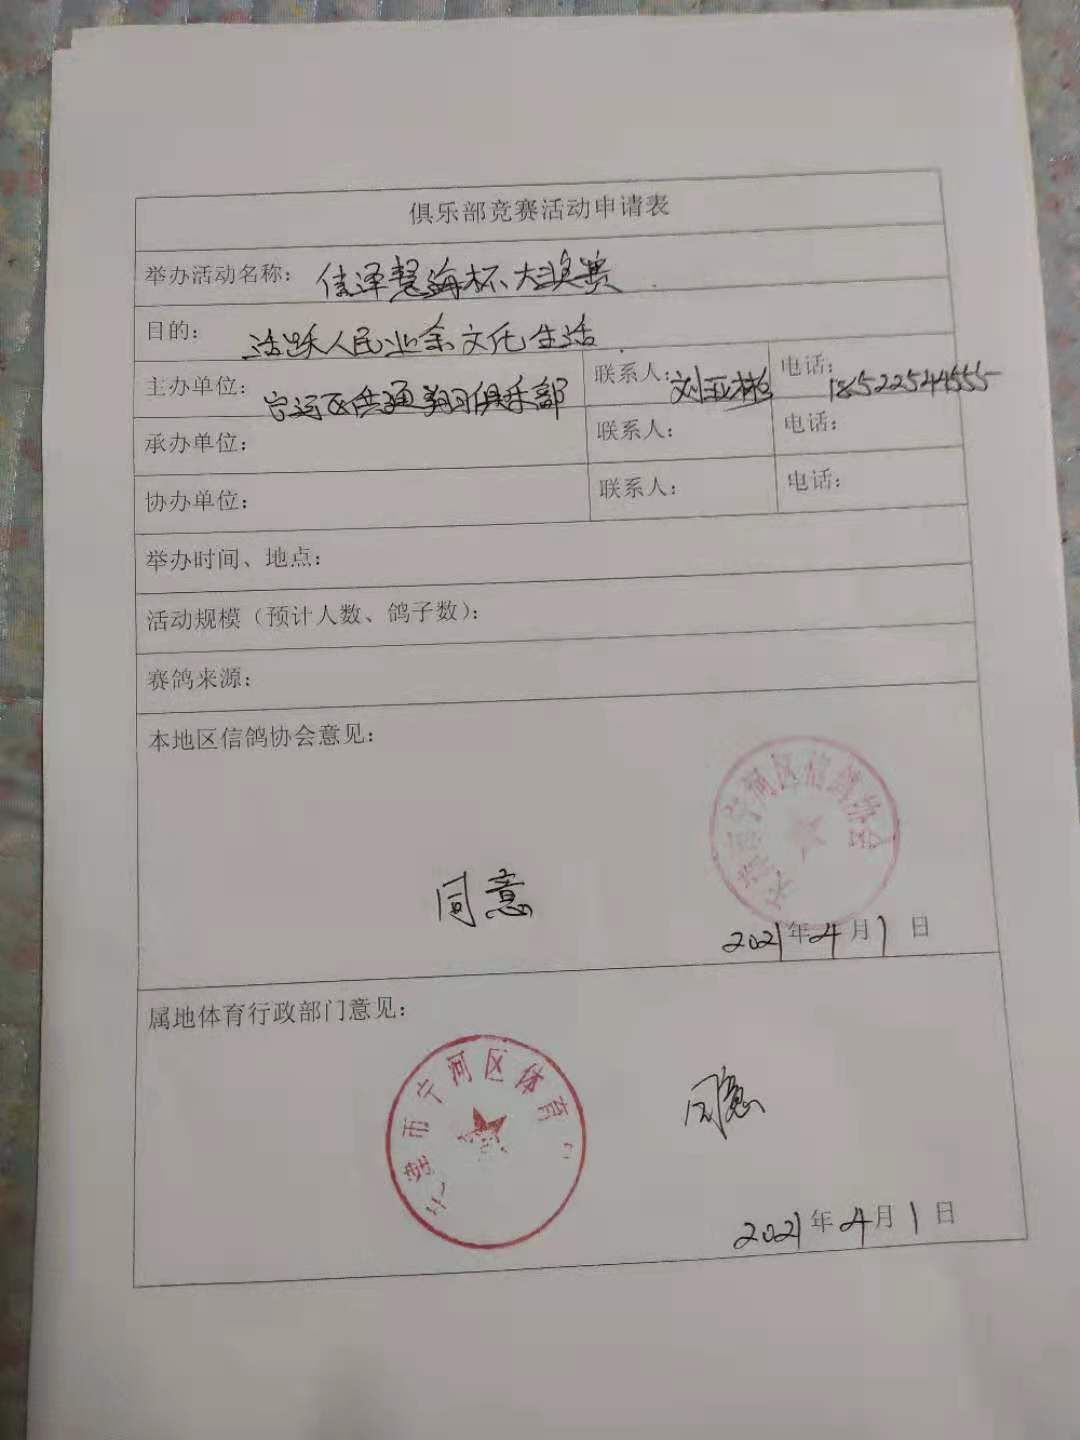 俱乐部竞赛活动申请表
举办活动名称: 佳泽慧海杯大奖赛
目的: 活跃人民业余文化生活
主办单位: 宁河区洪通翔俱乐部 联系人: 刘亚彬 电话: 18522544555
承办单位: 联系人: 电话:
协办单位: 联系人: 电话:
举办时间、地点:
活动规模(预计人数、鸽子数):
赛鸽来源:
本地区信鸽协会意见:
天津市宁河区信鸽协会
同意
2021年4月1日
属地体育行政部门意见:
市宁河区体育
同意
2021年4月1日